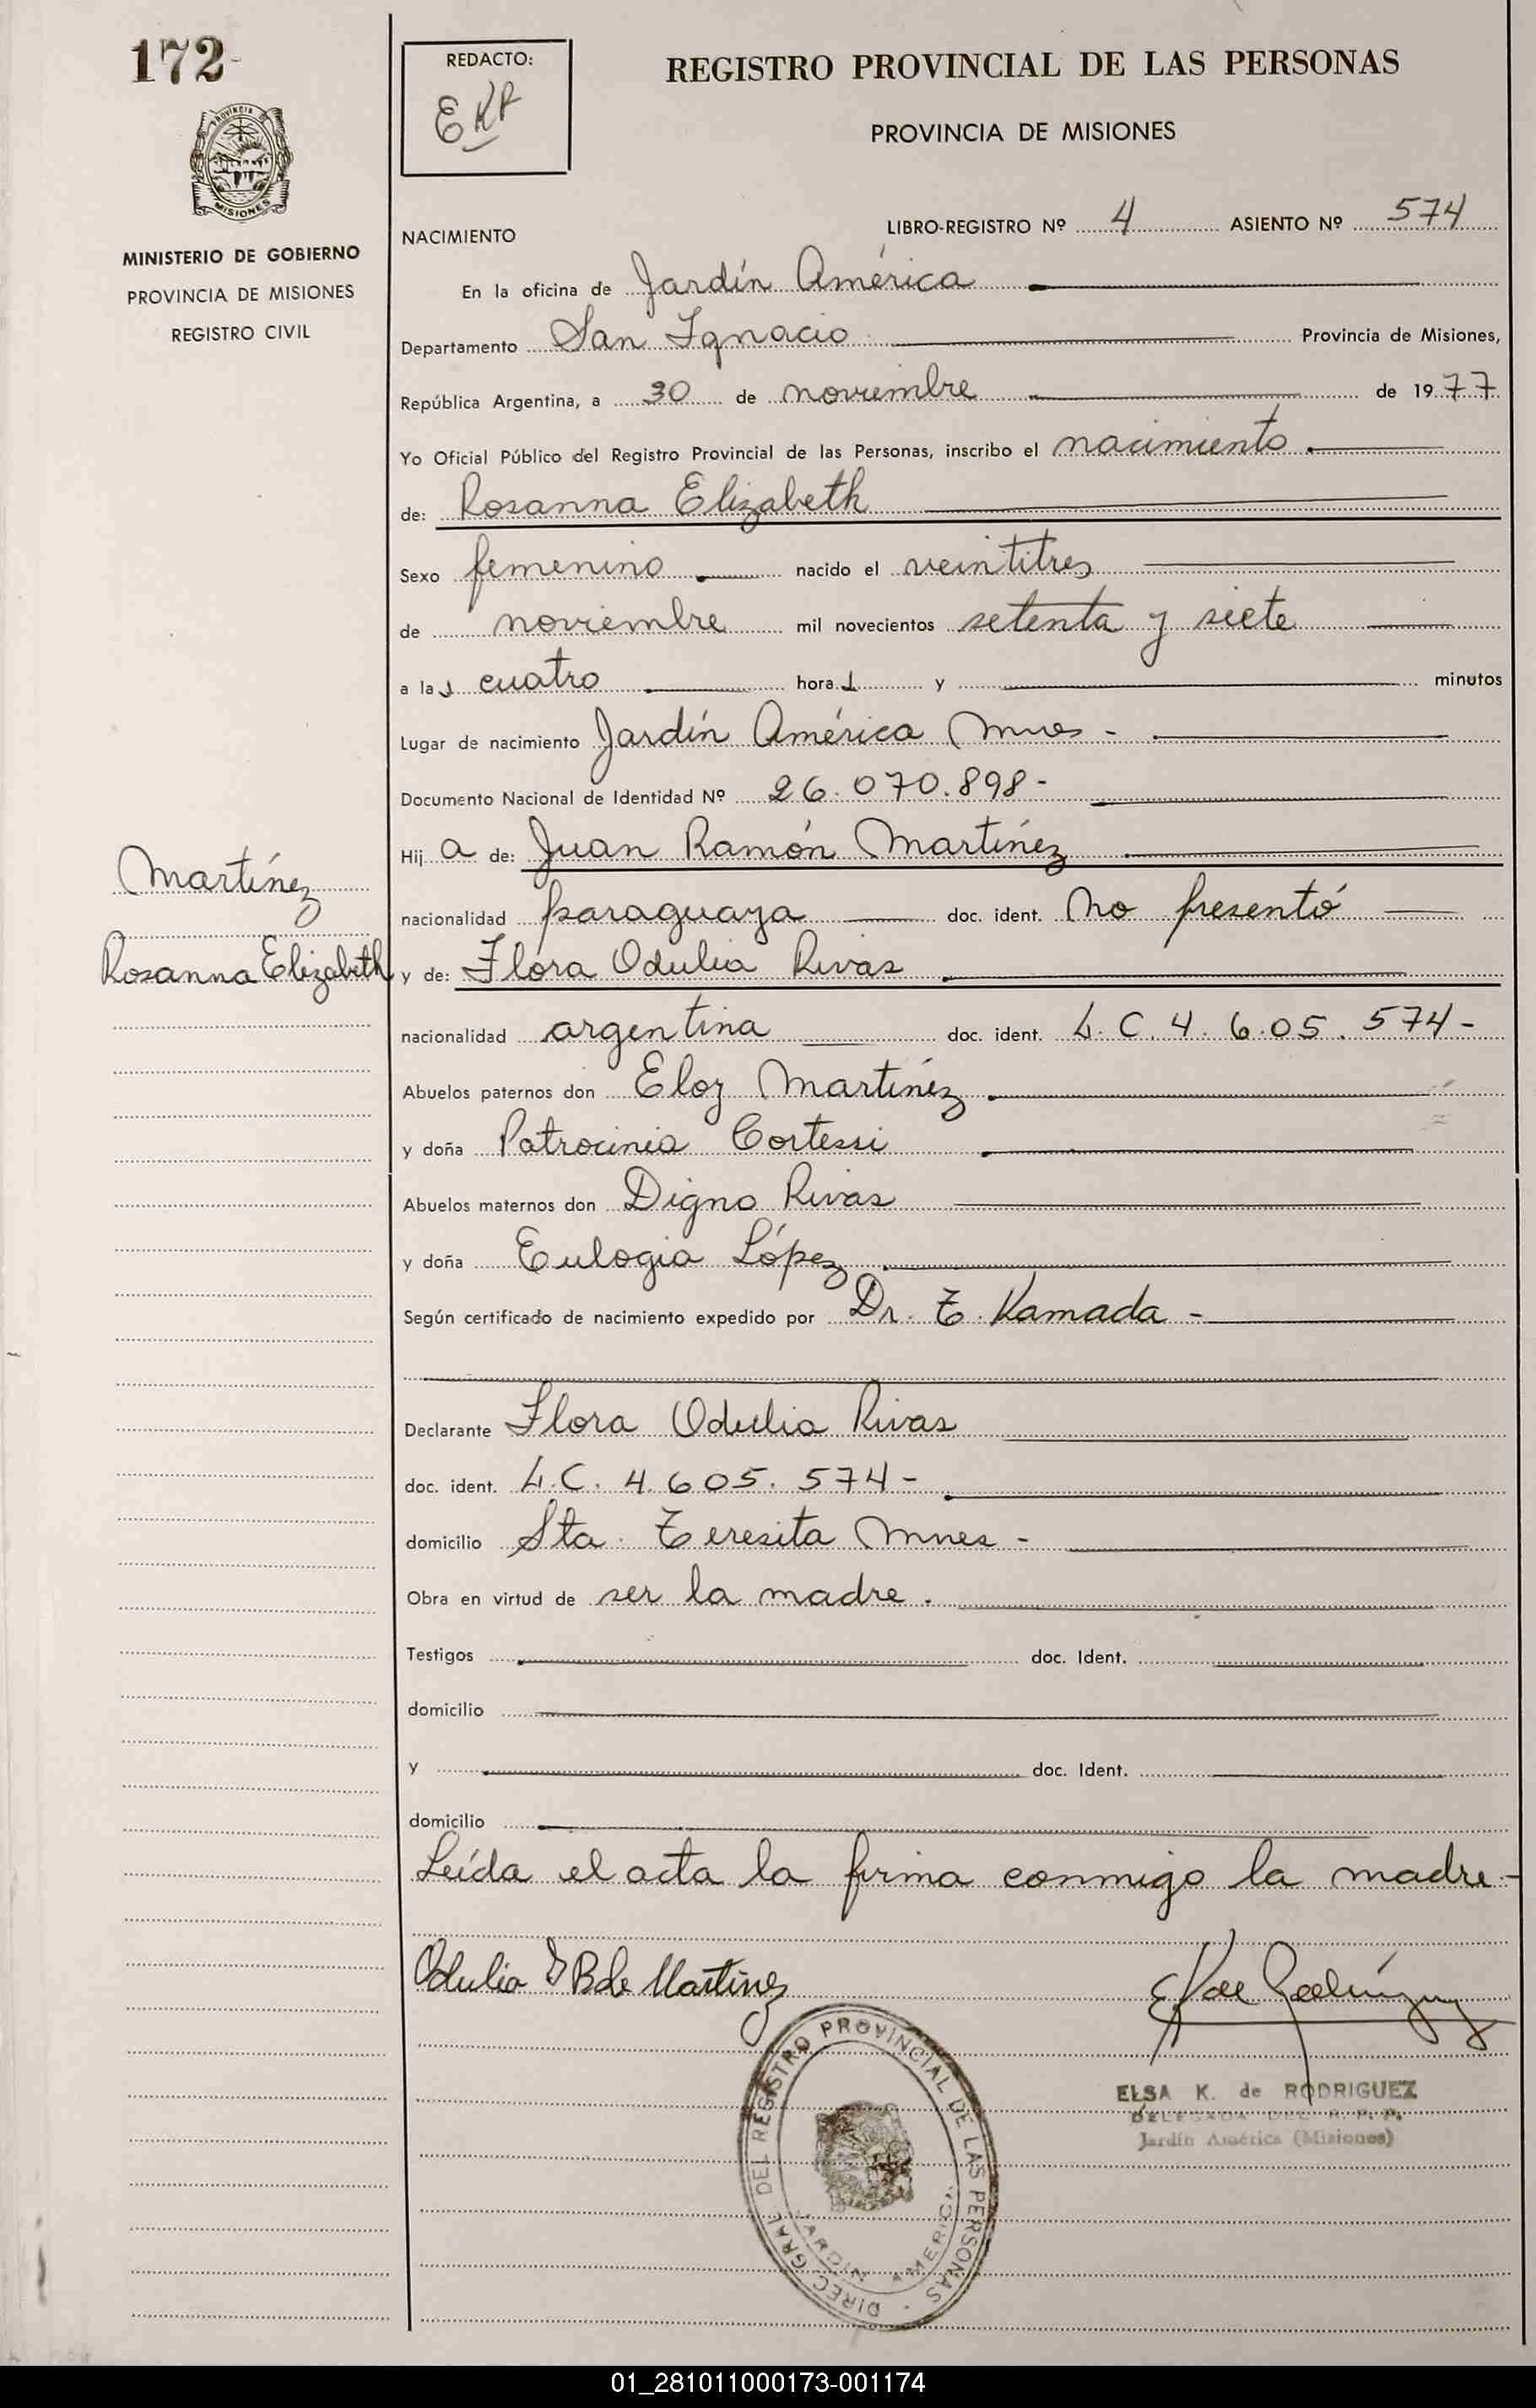 172-
REDACTO:
EKR
REGISTRO PROVINCIAL DE LAS PERSONAS
PROVINCIA DE MISIONES
PROVINCIA DE
MISIONES
MINISTERIO DE GOBIERNO
PROVINCIA DE MISIONES
REGISTRO CIVIL
LIBRO-REGISTRO Nº 4 ASIENTO Nº 574
NACIMIENTO
En la oficina de Jardín América
Departamento San Ignacio Provincia de Misiones,
República Argentina, a 30 de noviembre de 1977
Yo Oficial Público del Registro Provincial de las Personas, inscribo el nacimiento
de: Rosanna Elizabeth
Sexo femenino nacido el veintitres
de noviembre mil novecientos setenta y siete
a las cuatro horas y minutos
Lugar de nacimiento Jardín América Mnes -
Documento Nacional de Identidad Nº 26.070.898-
Hija de: Juan Ramón Martínez
Martínez
nacionalidad paraguaya doc. ident. No presentó
Rosanna Elizabeth
y de: Flora Odulia Rivas
nacionalidad argentina doc. ident. L.C. 4.605.574-
Abuelos paternos don Eloy Martínez
y doña Patrocinia Cortessi
Abuelos maternos don Digno Rivas
y doña Eulogia López
Según certificado de nacimiento expedido por Dr. T. Kamada -
Declarante Flora Odulia Rivas
doc. ident. L.C. 4.605.574-
domicilio Sta. Teresita Mnes -
Obra en virtud de ser la madre.
Testigos doc. Ident.
domicilio
y doc. Ident.
domicilio
Leída el acta la firma conmigo la madre-
Odulia de Martinez
EK de Rodríguez
ELSA K. de RODRIGUEZ
DELEGADA DEL R. P. P.
Jardín América (Misiones)
DIREC. GRAL. DEL REGISTRO PROVINCIAL DE LAS PERSONAS
JARDIN AMERICA
01_281011000173-001174